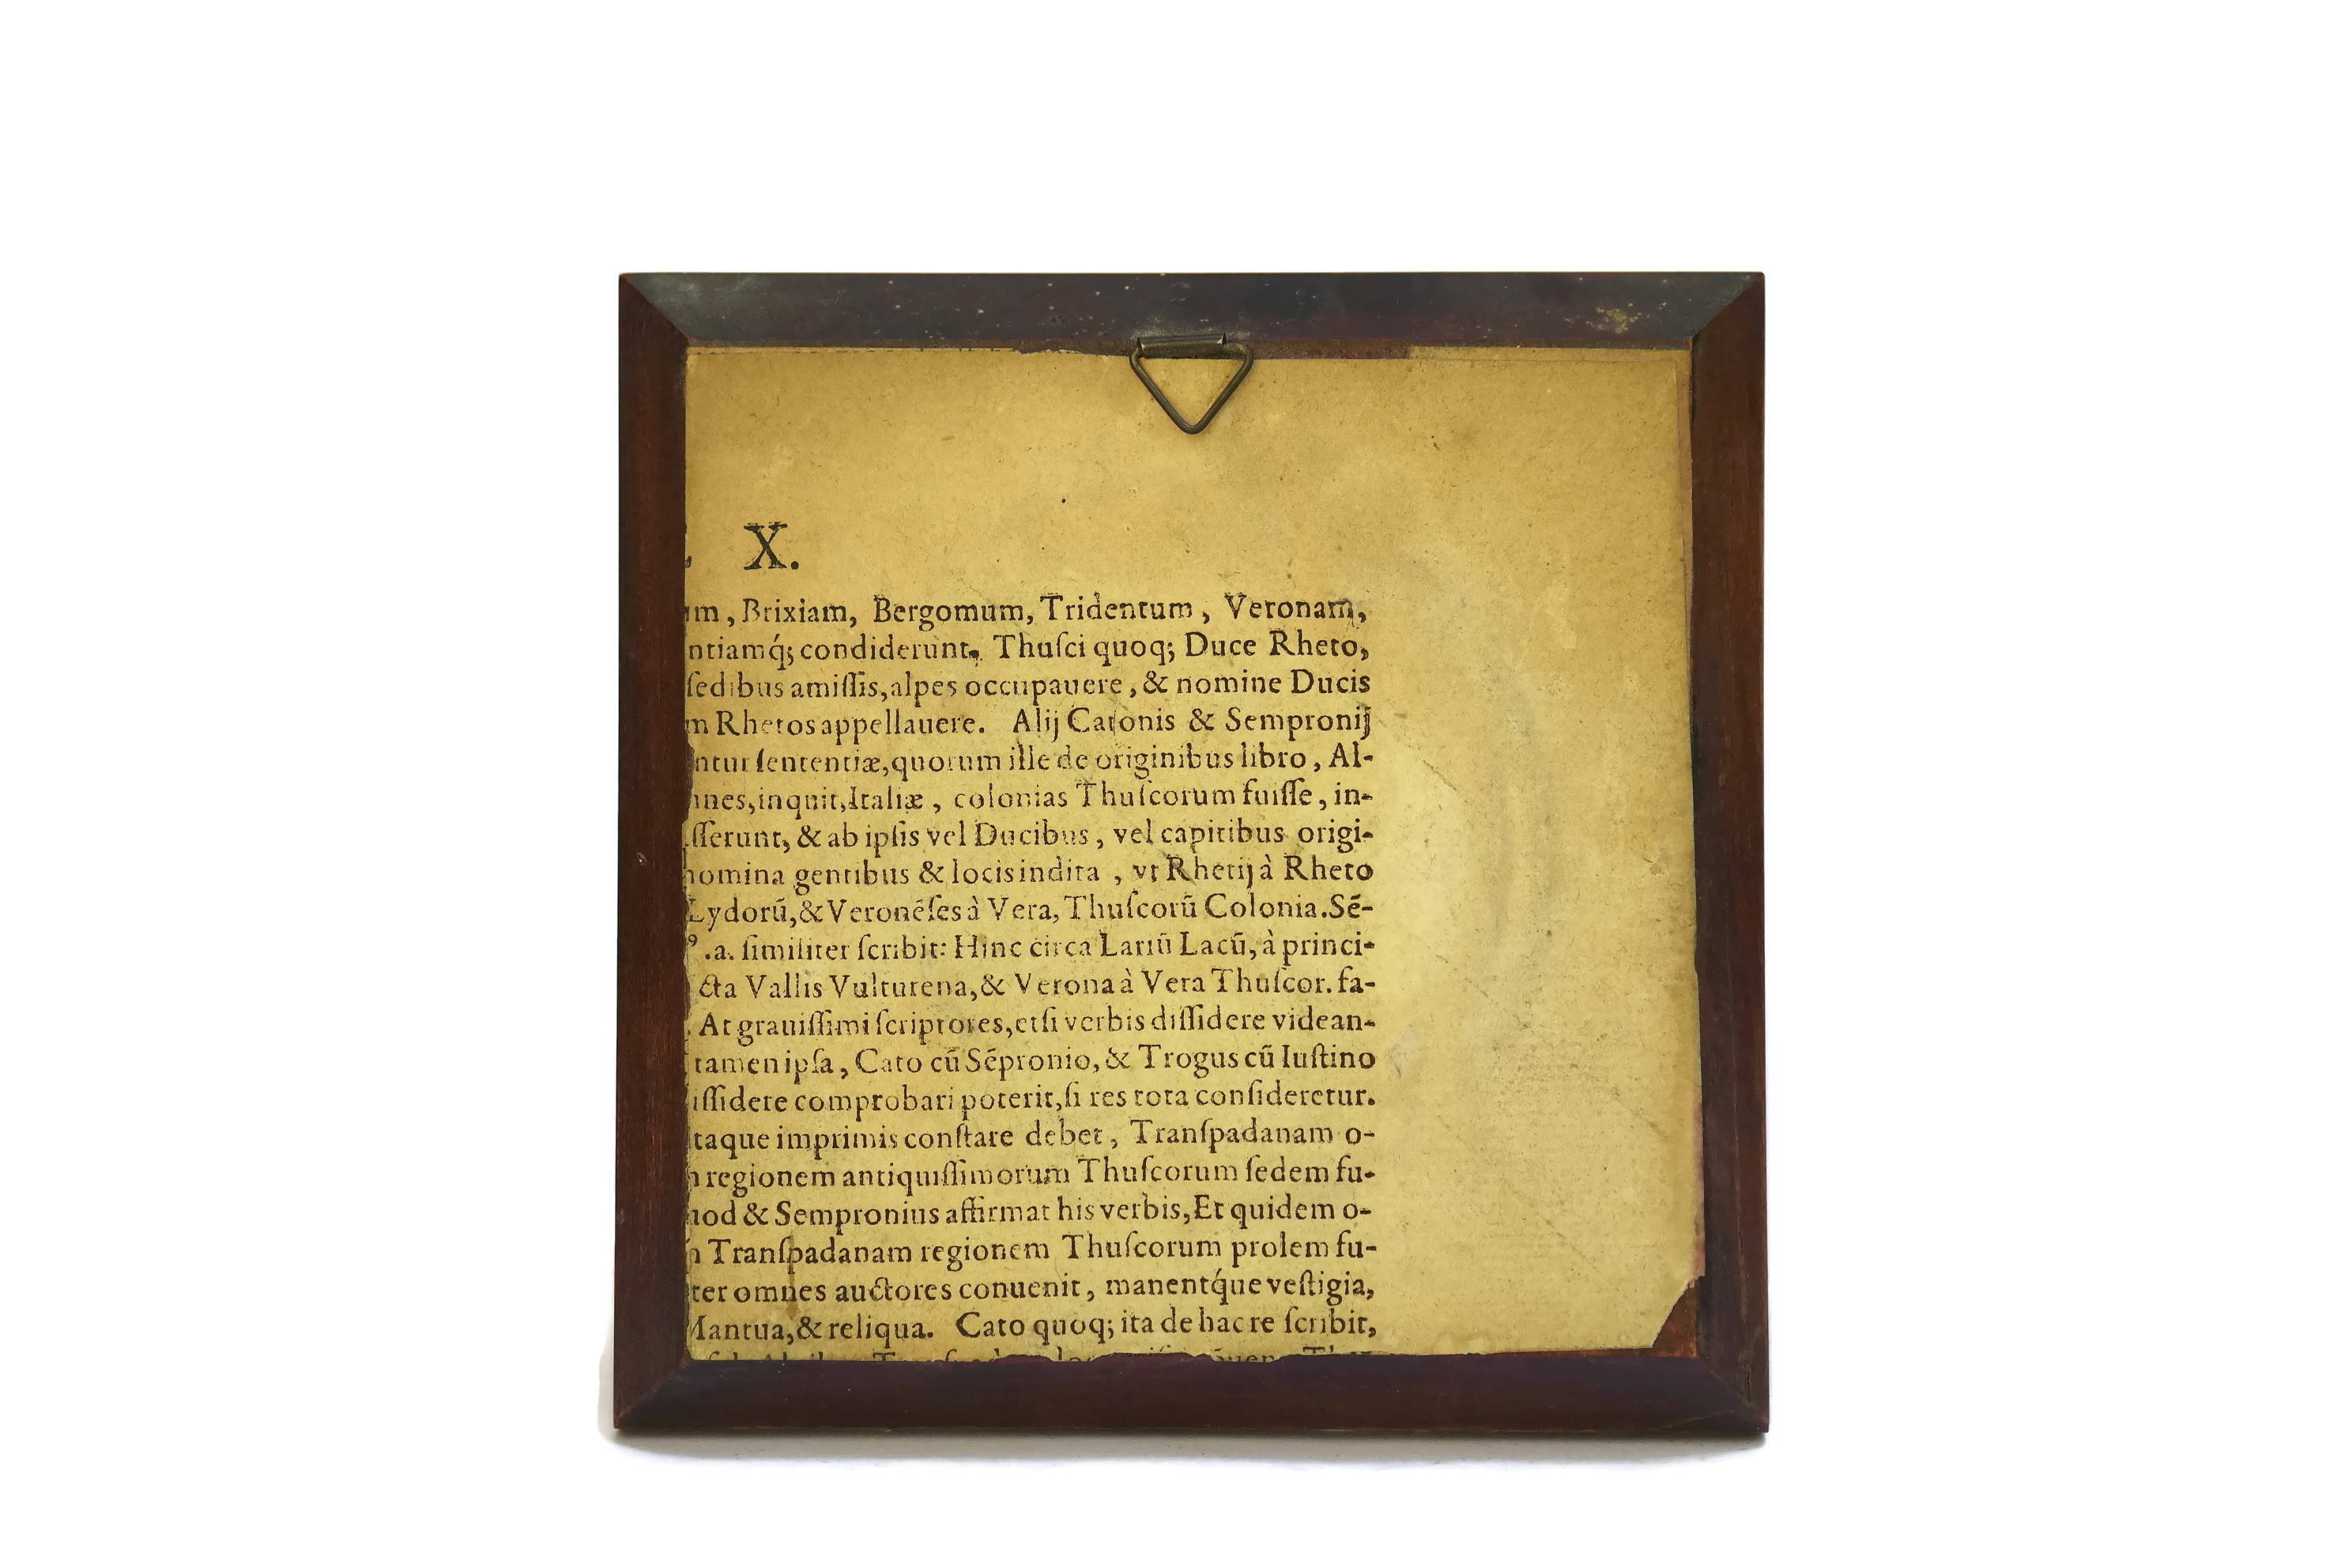 X.
m, Brixiam, Bergomum, Tridentum, Veronam,
ntiamq́; condiderunt. Thuſci quoq; Duce Rheto,
ſedibus amiſſis, alpes occupauere, & nomine Ducis
m Rhetos appellauere. Alij Catonis & Sempronij
ntur ſententiæ, quorum ille de originibus libro, Al-
nes, inquit, Italiæ, colonias Thuſcorum fuiſſe, in-
ſſerunt, & ab ipſis vel Ducibus, vel capitibus origi-
nomina gentibus & locis indita, vt Rhetij à Rheto
Lydorũ, & Veronẽſes à Vera, Thuſcorũ Colonia. Sẽ-
.a. ſimiliter ſcribit: Hinc circa Lariũ Lacũ, à princi-
cta Vallis Vulturena, & Verona à Vera Thuſcor. fa-
At grauiſſimi ſcriptores, etſi verbis diſſidere videan-
tamen ipſa, Cato cũ Sẽpronio, & Trogus cũ Iuſtino
iſſidere comprobari poterit, ſi res tota conſideretur.
taque imprimis conſtare debet, Tranſpadanam o-
regionem antiquiſſimorum Thuſcorum ſedem fu-
uod & Sempronius affirmat his verbis, Et quidem o-
Tranſpadanam regionem Thuſcorum prolem fu-
ter omnes auctores conuenit, manentq́ue veſtigia,
Mantua, & reliqua. Cato quoq; ita de hac re ſcribit,